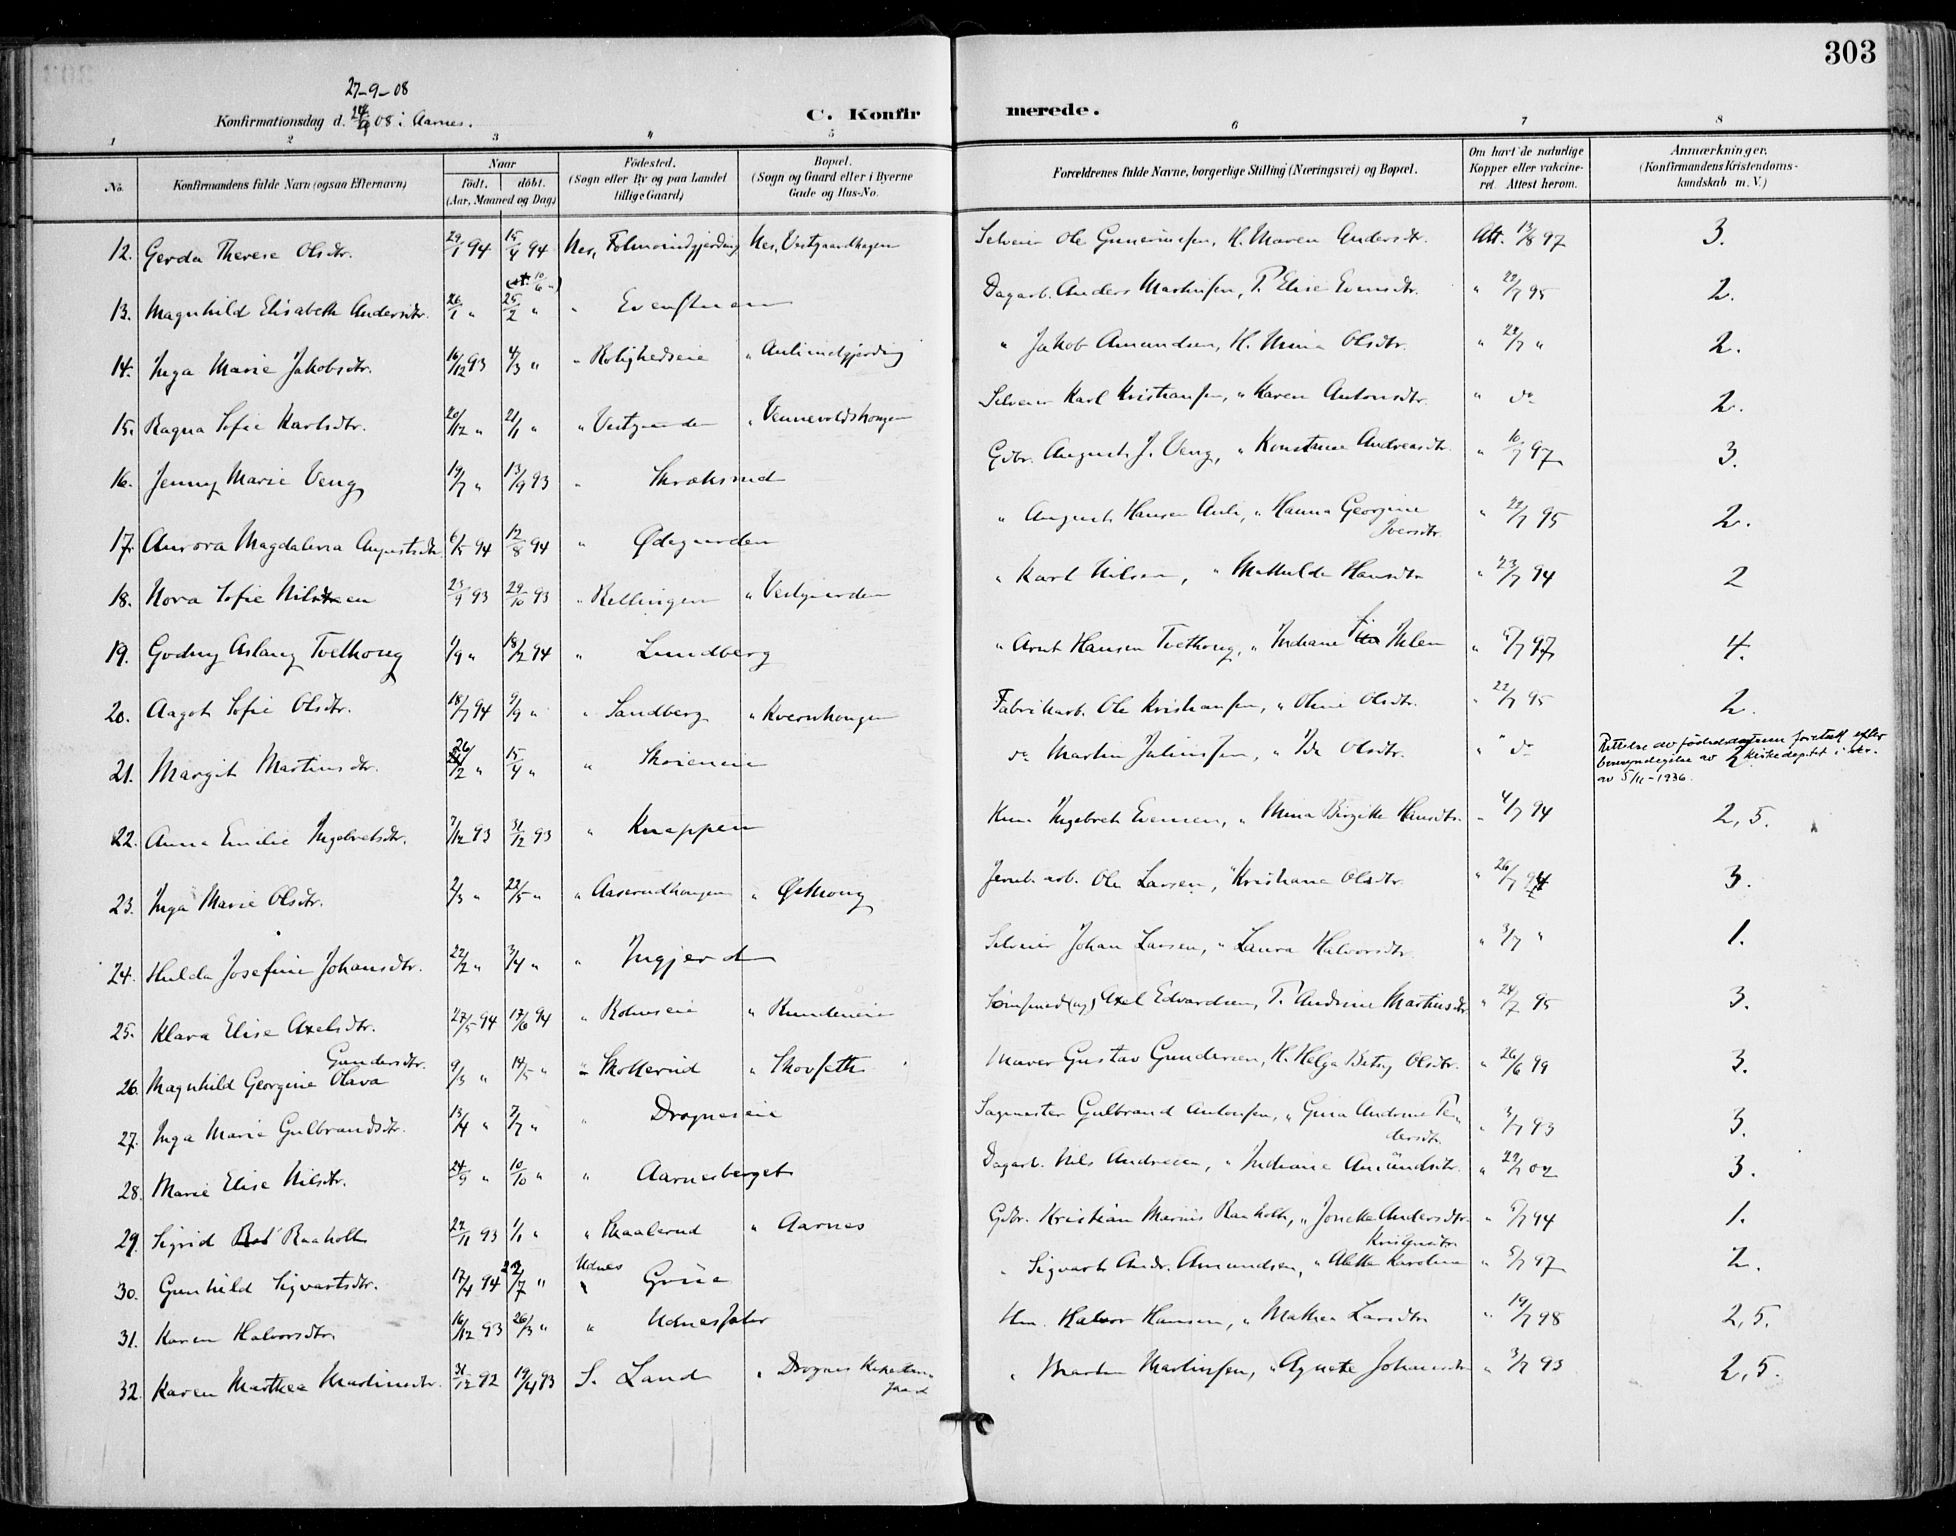 303
27-9-08
Konfirmationsdag d. 08 i Aarnes.
C. Konfirmerede.
1 2 3 " 5 6 7 8
No. Konfirmandens fulde Navn (ogsaa Efternavn) Naar født. døbt. (Aar, Maaned og Dag) Fødested. (Sogn eller By og paa Landet tillige Gaard) Bopæl. (Sogn og Gaard eller i Byerne Gade og Hus-No. Forældrenes fulde Navne, borgerlige Stilling (Næringsvei) og Bopæl. Om havt de naturlige Kopper eller vakcineret. Attest herom. Anmærkninger. (Konfirmandens Kristendomskundskab m. V.)
12. Gerda Therese Olsdtr. 29/1 94 15/4 94 Nes, Nes, Vestgaardhagen Selveier Ole H. Maren Andersdtr. Att. 13/8 97 3.
13. Magnhild Elisabeth Andersdtr. 26/1 " 25/2 " " Dagarb. Anders Martinsen, F. Elise Evensdtr. " 22/7 95 2.
14. Inga Marie Jakobsdtr. 16/12 93 4/3 " " Rolighedseie " Aulieindgjerding " Jakob Amundsen, H. Mina Olsdtr. " 22/7 " 2.
15. Ragna Sofie Karlsdtr. 20/12 " 21/1 " " Vestgaarden " Vennevoldshaugen Selveier Karl Kristiansen, " Karen Antonsdtr. " do 2.
16. Jenny Marie Veng 19/7 " 13/9 93 " Gdbr. August J. Veng, " Konstanse Andreasdtr. " 16/7 97 3.
17. Aurora Magdalena Augustsdtr. 6/5 94 12/8 94 " Ødegaarden " August Hansen Auli, " Hanna Georgine Iversdtr. " 22/7 95 2.
18. Nora Sofie Nilsen 23/9 93 29/10 93 " Rellingen " Vestgaarden " Karl Nilsen, " Mathilde Hansdtr. " 23/7 94 2
19. Gudny Aslaug Tvethoug 1/9 " 18/2 94 " Lundberg " Arnt Hansen Tvethoug, " Indiane Ihlen " 97 4.
20. Aagot Sofie Olsdtr. 18/7 94 9/9 " " Sandberg " Kvernhougen Fabrikarb. Ole Kristiansen, " Oline Olsdtr. " 22/7 95 2.
21. Margit Martinsdtr. 26/2 " 15/4 " " Skoieneie do Martin Juliussen, " Ida Olsdtr. " " do 2
Rettelse av fødselsdatum foretatt efter bemyndigelse av Kirkedeptet i skr. av 5/11-1936.
22. Anna Emilie Ingebretsdtr. 7/12 93 31/12 93 " Knappen Hm. Ingebret Evensen, " Mina Birgitte Hansdtr. " 4/7 94 2, 5.
23. Inga Marie Olsdtr. 2/3 " 22/5 " " Aaserudhaugen " Østhoug Jernb. arb. Ole Larsen, " Kristiane Olsdtr. " 26/7 94 3.
24. Hulda Josefine Johansdtr. 22/2 " 3/4 " " Ingjerd Selveier Johan Larsen, " Laura Halvorsdtr. " 3/7 " 1.
25. Klara Elise Axelsdtr. 27/5 94 17/6 94 " " Axel Edvardsen, F. Andrine Martinsdtr. " 24/7 95 3.
26. Magnhild Georgine Olava Gundersdtr. 9/3 " 14/5 " " Skollerud " Murer Gustav Gundersen, H. Helga Betsy Olsdtr. " 26/6 99 3.
27. Inga Marie Gulbrandsdtr. 13/4 " 7/7 " " Drogneseie Sagmester Gulbrand Antonsen, " Gina Andrine Pedersdtr. " 3/7 93 3.
28. Marie Elise Nilsdtr. 24/9 " 10/10 " " Aarnesberget Dagarb. Nils Andresen, " Indiane Amundsdtr. " 22/7 02 3.
29. Sigrid Raaholt 22/11 93 1/1 " " Skaalerud " Aarnes Gdbr. Kristian Marius Raaholt, " Andersdtr. " 94 1.
30. Gunhild Sigvartsdtr. 17/4 94 22/7 " Udnes Grüe " Sigvart Andr. Amundsen, " Karoline " 5/7 97 2.
31. Karen Halvorsdtr. 16/12 93 26/3 " " Hm. Halvor Hansen, " Mathea Larsdtr. " 19/7 98 2, 5.
32. Karen Marthea Martinsdtr. 31/12 92 19/4 93 S. Land " Drognes " Martin Martinsen, " Agnete Johansdtr. " 3/7 93 2, 5.